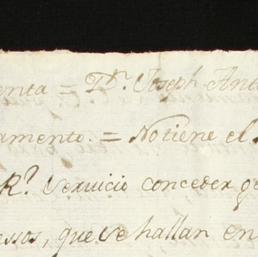 enta = D.ⁿ Joseph Anto
amento. = No tiene el
R.ˡ Servicio conceder
essos, que se hallan en